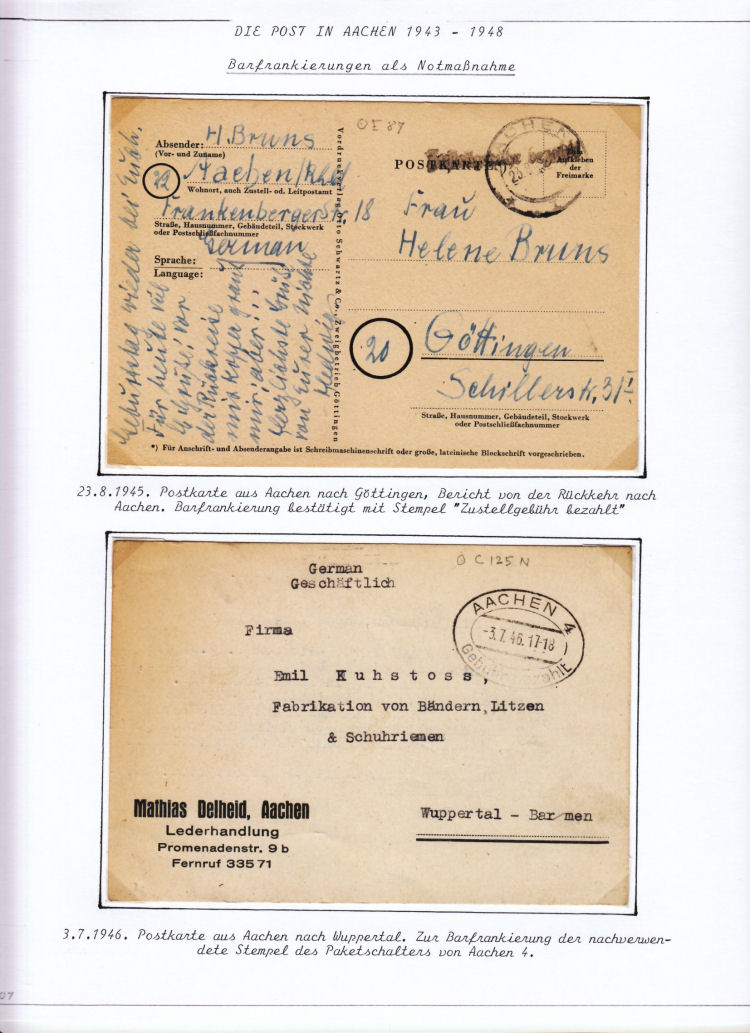 DIE POST IN AACHEN 1943 - 1948
Barfrankierungen als Notmaßnahme
Absender: H. Bruns
(Vor- und Zuname)
22 Aachen/Rhld
Wohnort, auch Zustell- od. Leitpostamt
Frankenbergerstr. 18
Straße, Hausnummer, Gebäudeteil, Stockwerk
oder Postschließfachnummer
Sprache: German
Language:
Geburtstag wieder bei Euch.
Für heute viel
Grüße! Vor
der Rückreise
mir aber!...
herzlichste Grüße
von Eurer Nichte
Hedwig
Vordruckverlag Otto Schwartz & Co., Zweigbetrieb Göttingen
OE 87
POSTKARTE
bezahlt
AACHEN
23
Zum
Aufkleben
der
Freimarke
Frau
Helene Bruns
20 Göttingen
Schillerstr. 31 I
Straße, Hausnummer, Gebäudeteil, Stockwerk
oder Postschließfachnummer
*) Für Anschrift- und Absenderangabe ist Schreibmaschinenschrift oder große, lateinische Blockschrift vorgeschrieben.
23.8.1945. Postkarte aus Aachen nach Göttingen, Bericht von der Rückkehr nach
Aachen. Barfrankierung bestätigt mit Stempel "Zustellgebühr bezahlt"
German
Geschäftlich
O C 125 N
AACHEN 4
-3.7.46.17-18
Firma
Emil Kuhstoss,
Fabrikation von Bändern, Litzen
& Schuhriemen
Wuppertal - Barmen
Mathias Delheid, Aachen
Lederhandlung
Promenadenstr. 9 b
Fernruf 335 71
3.7.1946. Postkarte aus Aachen nach Wuppertal. Zur Barfrankierung der nachverwen-
dete Stempel des Paketschalters von Aachen 4.
07